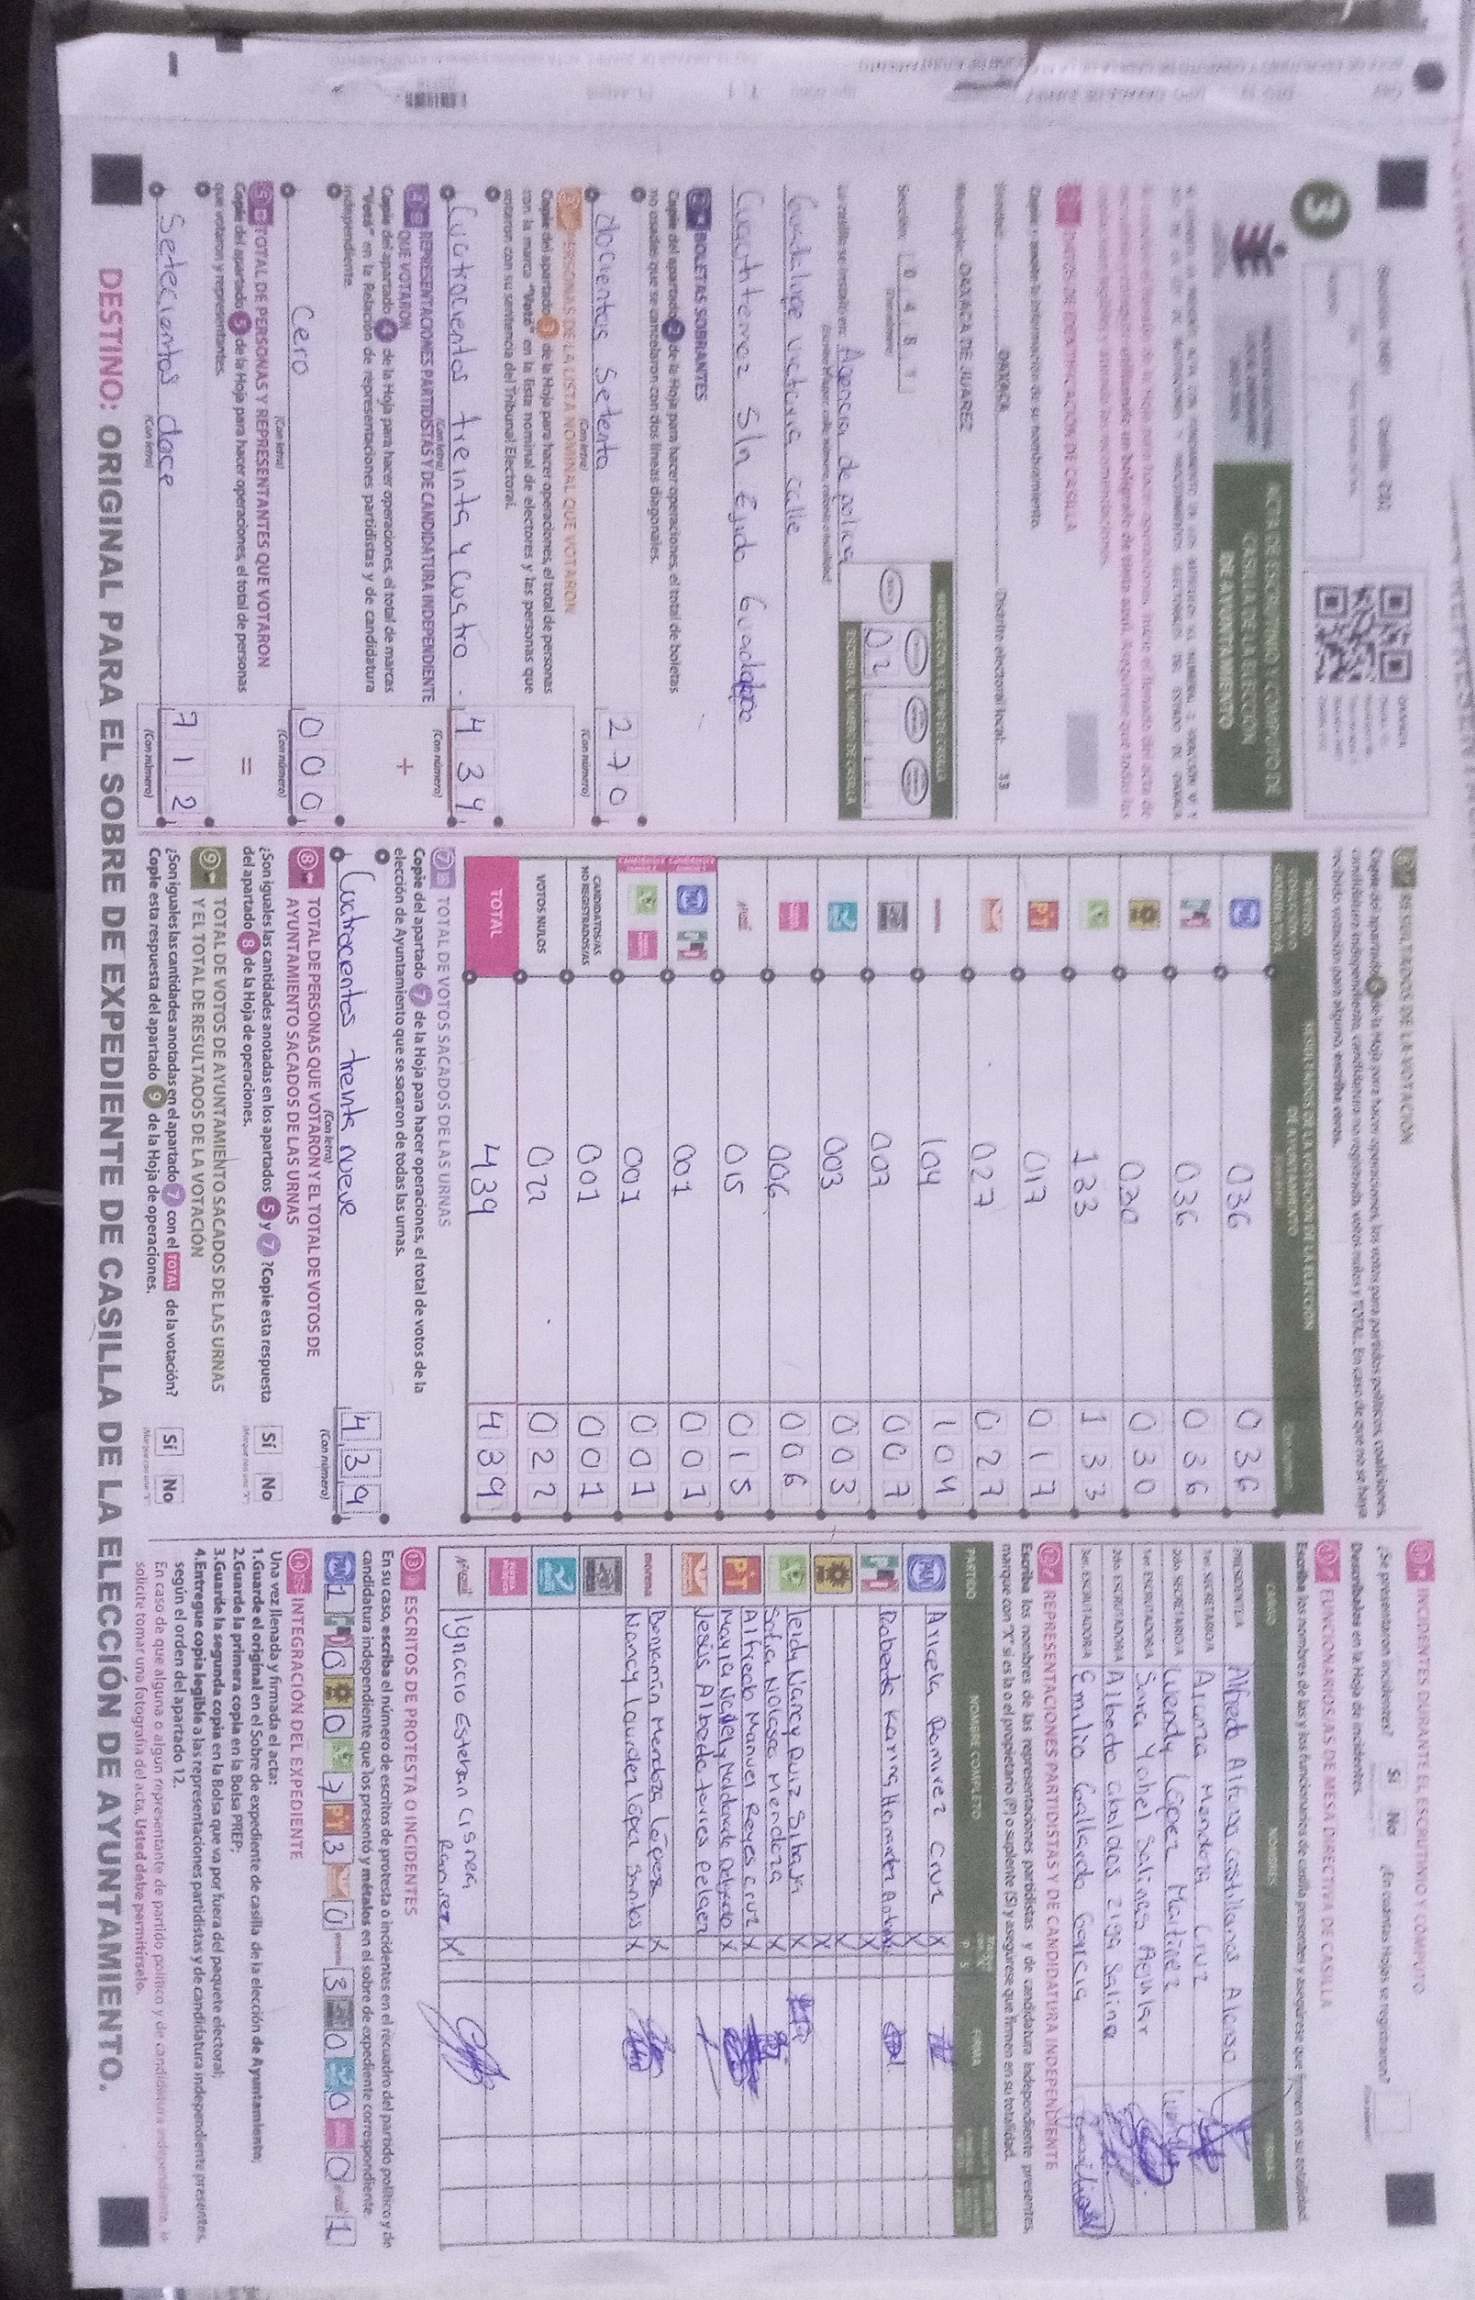 3
ACTA DE ESCRUTINIO Y CÓMPUTO DE
CASILLA DE LA ELECCIÓN
DE AYUNTAMIENTO
DATOS DE IDENTIFICACIÓN DE CASILLA
Copie y anote la información de su nombramiento.
OAXACA Distrito electoral local: 13
Municipio: OAXACA DE JUÁREZ
Sección: 0 4 8
MARQUE CON X EL TIPO DE CASILLA
ESCRIBA EL NÚMERO DE CASILLA
02
La casilla se instaló en: Agencia de policia
Guadalupe Victoria calle
Cuauhtemoz S/n Ejido Guadalupe
2 BOLETAS SOBRANTES
Copie del apartado 2 de la Hoja para hacer operaciones, el total de boletas
no usadas que se cancelaron con dos líneas diagonales.
docientas Setenta 270
(Con letra) (Con número)
3 PERSONAS DE LA LISTA NOMINAL QUE VOTARON
Copie del apartado 3 de la Hoja para hacer operaciones, el total de personas
con la marca "Votó" en la lista nominal de electores y las personas que
votaron con su sentencia del Tribunal Electoral.
Cuatrocientos treinta y Cuatro
(Con letra) (Con número)
4 REPRESENTACIONES PARTIDISTAS Y DE CANDIDATURA INDEPENDIENTE
QUE VOTARON
Copie del apartado 4 de la Hoja para hacer operaciones, el total de marcas
"Votó" en la Relación de representaciones partidistas y de candidatura
independiente.
+
Cero 000
(Con letra) (Con número)
5 TOTAL DE PERSONAS Y REPRESENTANTES QUE VOTARON
Copie del apartado 5 de la Hoja para hacer operaciones, el total de personas
que votaron y representantes.
=
Setecientos doce 712
(Con letra) (Con número)
6 RESULTADOS DE LA VOTACIÓN
Copie del apartado 6 de la Hoja para hacer operaciones, los votos para partidos políticos, coaliciones,
candidatura independiente, candidatura no registrada, votos nulos y TOTAL. En caso de que no se haya
recibido votación para alguno, escriba ceros.
RESULTADOS DE LA VOTACIÓN DE LA ELECCIÓN
DE AYUNTAMIENTO
PAN 036 036
036 036
030 030
133 133
PT 017 017
027 027
morena 104 104
007 007
003 003
006 006
015 015
001 001
001 001
CANDIDATOS/AS
NO REGISTRADOS/AS 001 001
VOTOS NULOS 022 022
TOTAL 439 439
7 TOTAL DE VOTOS SACADOS DE LAS URNAS
Copie del apartado 7 de la Hoja para hacer operaciones, el total de votos de la
elección de Ayuntamiento que se sacaron de todas las urnas.
Cuatrocentos trenta nueve 439
(Con letra) (Con número)
8 TOTAL DE PERSONAS QUE VOTARON Y EL TOTAL DE VOTOS DE
AYUNTAMIENTO SACADOS DE LAS URNAS
¿Son iguales las cantidades anotadas en los apartados 5 y 7? Copie esta respuesta
del apartado 8 de la Hoja de operaciones.
Sí No
9 TOTAL DE VOTOS DE AYUNTAMIENTO SACADOS DE LAS URNAS
Y EL TOTAL DE RESULTADOS DE LA VOTACIÓN
¿Son iguales las cantidades anotadas en el apartado 7 con el TOTAL de la votación?
Copie esta respuesta del apartado 9 de la Hoja de operaciones.
Sí No
INCIDENTES DURANTE EL ESCRUTINIO Y CÓMPUTO
¿Se presentaron incidentes? Sí No ¿En cuántas Hojas se registraron?
Descríbalos en la Hoja de incidentes.
FUNCIONARIOS/AS DE MESA DIRECTIVA DE CASILLA
Escriba los nombres de las y los funcionarios de casilla presentes y asegúrese que firmen en su totalidad.
CARGO NOMBRES FIRMAS
PRESIDENTE/A Alfredo Alfonso castillanos Alonso
1er. SECRETARIO/A Arlana Mendoza Cruz
2do. SECRETARIO/A Wendy López Martinez
1er. ESCRUTADOR/A Sara Yohel Salinas Aguilar
2do. ESCRUTADOR/A Alberto abaldos Ziga Salina
3er. ESCRUTADOR/A Emilio Gallardo Garcia
12 REPRESENTACIONES PARTIDISTAS Y DE CANDIDATURA INDEPENDIENTE
Escriba los nombres de las representaciones partidistas y de candidatura independiente presentes,
marque con "X" si es la o el propietario (P) o suplente (S) y asegúrese que firmen en su totalidad.
PARTIDO NOMBRE COMPLETO FIRMA
PAN Aricela Ramirez Cruz X
Roberta Karina Hernandez X
Leidy Nancy Ruiz Sibaja X
Sofia Nolasco Mendoza X
PT Alfredo Manuel Reyes cruz X
Mayra Nallely Maldonado Delgado X
Jesús Alberto torres Pelaez
morena Benjamin Mendoza López X
Nancy Lourdes López Santos X
Ignacio Esteban Cisneros
Ramirez X
13 ESCRITOS DE PROTESTA O INCIDENTES
En su caso, escriba el número de escritos de protesta o incidentes en el recuadro del partido político y de
candidatura independiente que los presentó y métalos en el sobre de expediente correspondiente.
PAN 1 0 0 7 PT 3 0 morena 3 0 0 0 1
14 INTEGRACIÓN DEL EXPEDIENTE
Una vez llenada y firmada el acta:
1. Guarde el original en el Sobre de expediente de casilla de la elección de Ayuntamiento;
2. Guarde la primera copia en la Bolsa PREP;
3. Guarde la segunda copia en la Bolsa que va por fuera del paquete electoral;
4. Entregue copia legible a las representaciones partidistas y de candidatura independiente presentes,
según el orden del apartado 12.
En caso de que alguna o algun representante de partido político y de candidatura independiente, le
solicite tomar una fotografía del acta, Usted debe permitírselo.
DESTINO: ORIGINAL PARA EL SOBRE DE EXPEDIENTE DE CASILLA DE LA ELECCIÓN DE AYUNTAMIENTO.